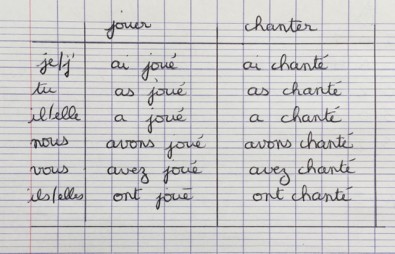 jouer chanter
je/j' ai joué ai chanté
tu as joué as chanté
il/elle a joué a chanté
nous avons joué avons chanté
vous avez joué avez chanté
ils/elles ont joué ont chanté